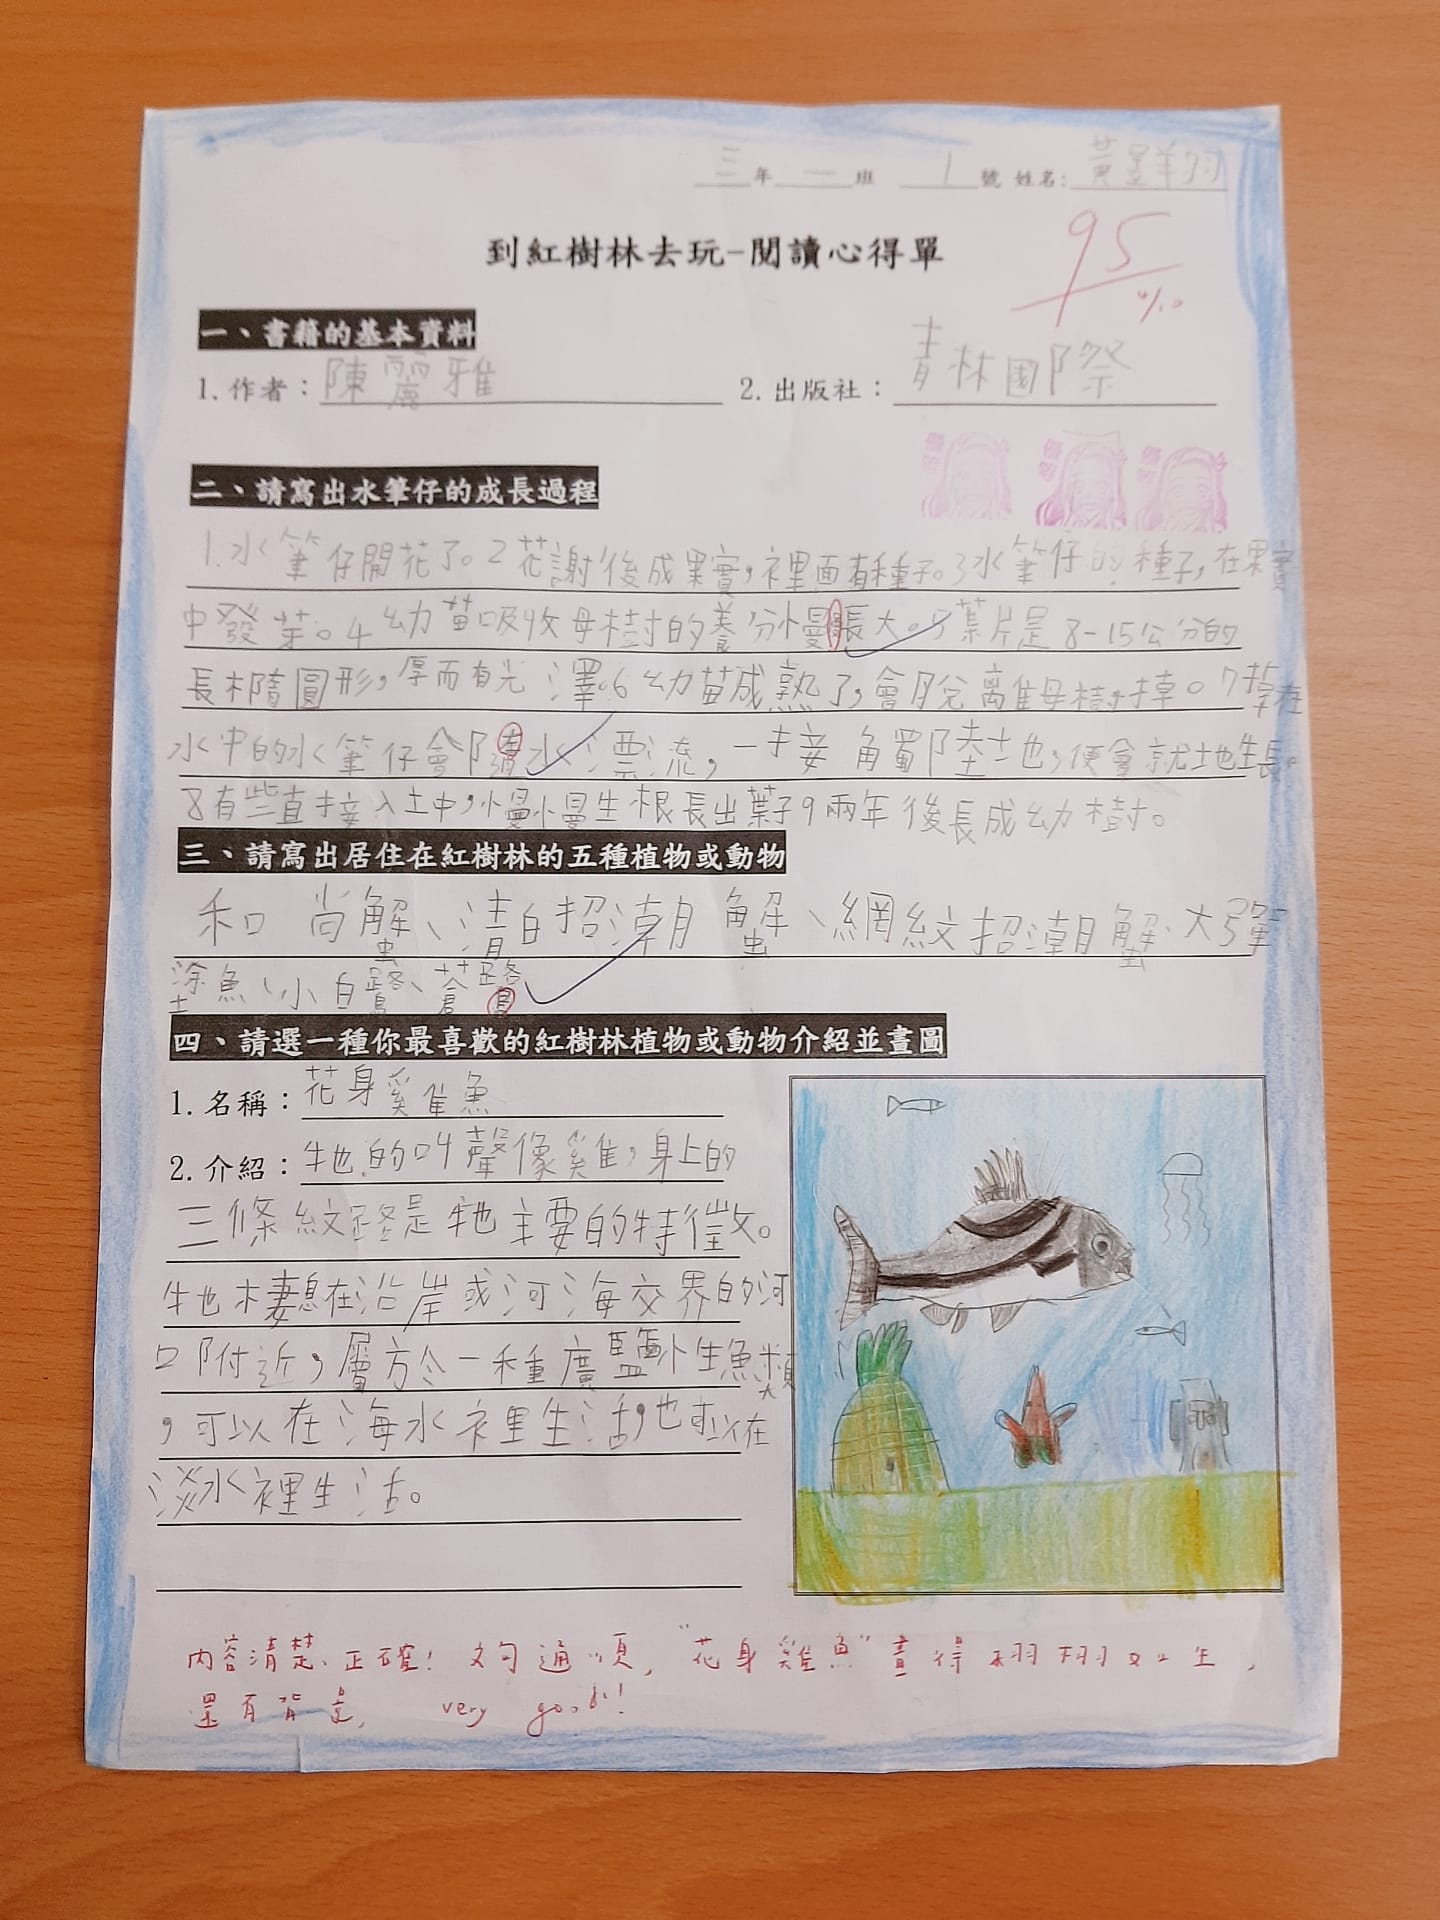 三年一班 1號 姓名:黃昱翔
到紅樹林去玩-閱讀心得單
95
4/10
一、書籍的基本資料
1.作者：陳麗雅 2.出版社：青林國際
優等 優等 優等
二、請寫出水筆仔的成長過程
1.水筆仔開花了。2花謝後成果實，裡面有種子。3水筆仔的種子，在果實
中發芽。4幼苗吸收母樹的養分慢長大。5葉片是8-15公分的
長橢圓形，厚而有光澤。6幼苗成熟了，會脫離母樹掉。7掉在
水中的水筆仔會隨水漂流，一接觸陸地，便會就地生長。
8有些直接入土中，慢慢生根長出葉子9兩年後長成幼樹。
三、請寫出居住在紅樹林的五種植物或動物
和尚蟹、清白招潮蟹、網紋招潮蟹、大彈
塗魚、小白鷺、蒼鷺
四、請選一種你最喜歡的紅樹林植物或動物介紹並畫圖
1.名稱：花身雞魚
2.介紹：牠的叫聲像雞，身上的
三條紋路是牠主要的特徵。
牠棲息在沿岸或河海交界的河
口附近，屬於一種廣鹽性魚類
，可以在海水裡生活，也可以在
淡水裡生活。
內容清楚、正確！文句通順，"花身雞魚"畫得栩栩如生，
還有背景， very good！